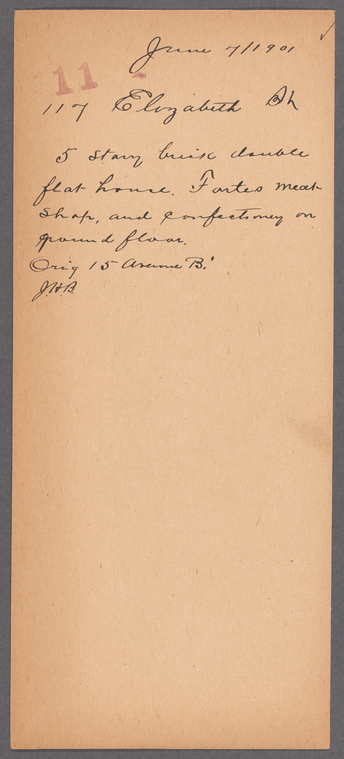 June 7/1901
11 -
117 Elizabeth St
5 story brick double
flat house. Fortes meat
shop, and confectioney on
ground floor.
Orig 15 Avenue B.
J.H.B.